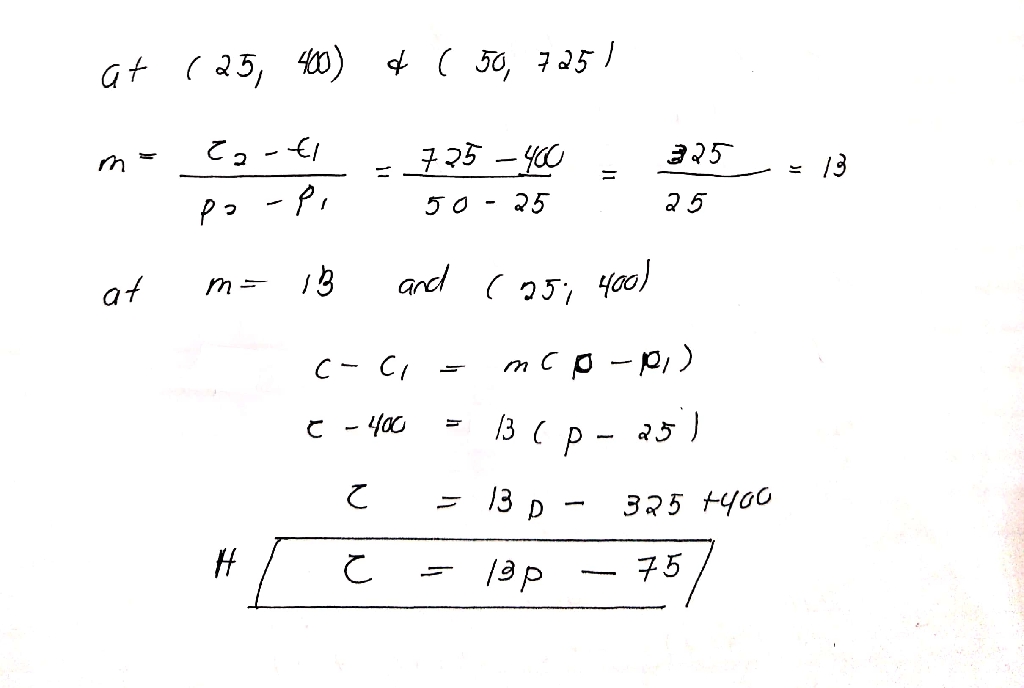 at (25, 400) & (50, 725)
m = C2 - C1 / P2 - P1 = 725 - 400 / 50 - 25 = 325 / 25 = 13
at m = 13 and (25, 400)
C - C1 = m(p - p1)
C - 400 = 13(p - 25)
C = 13p - 325 + 400
# C = 13p - 75